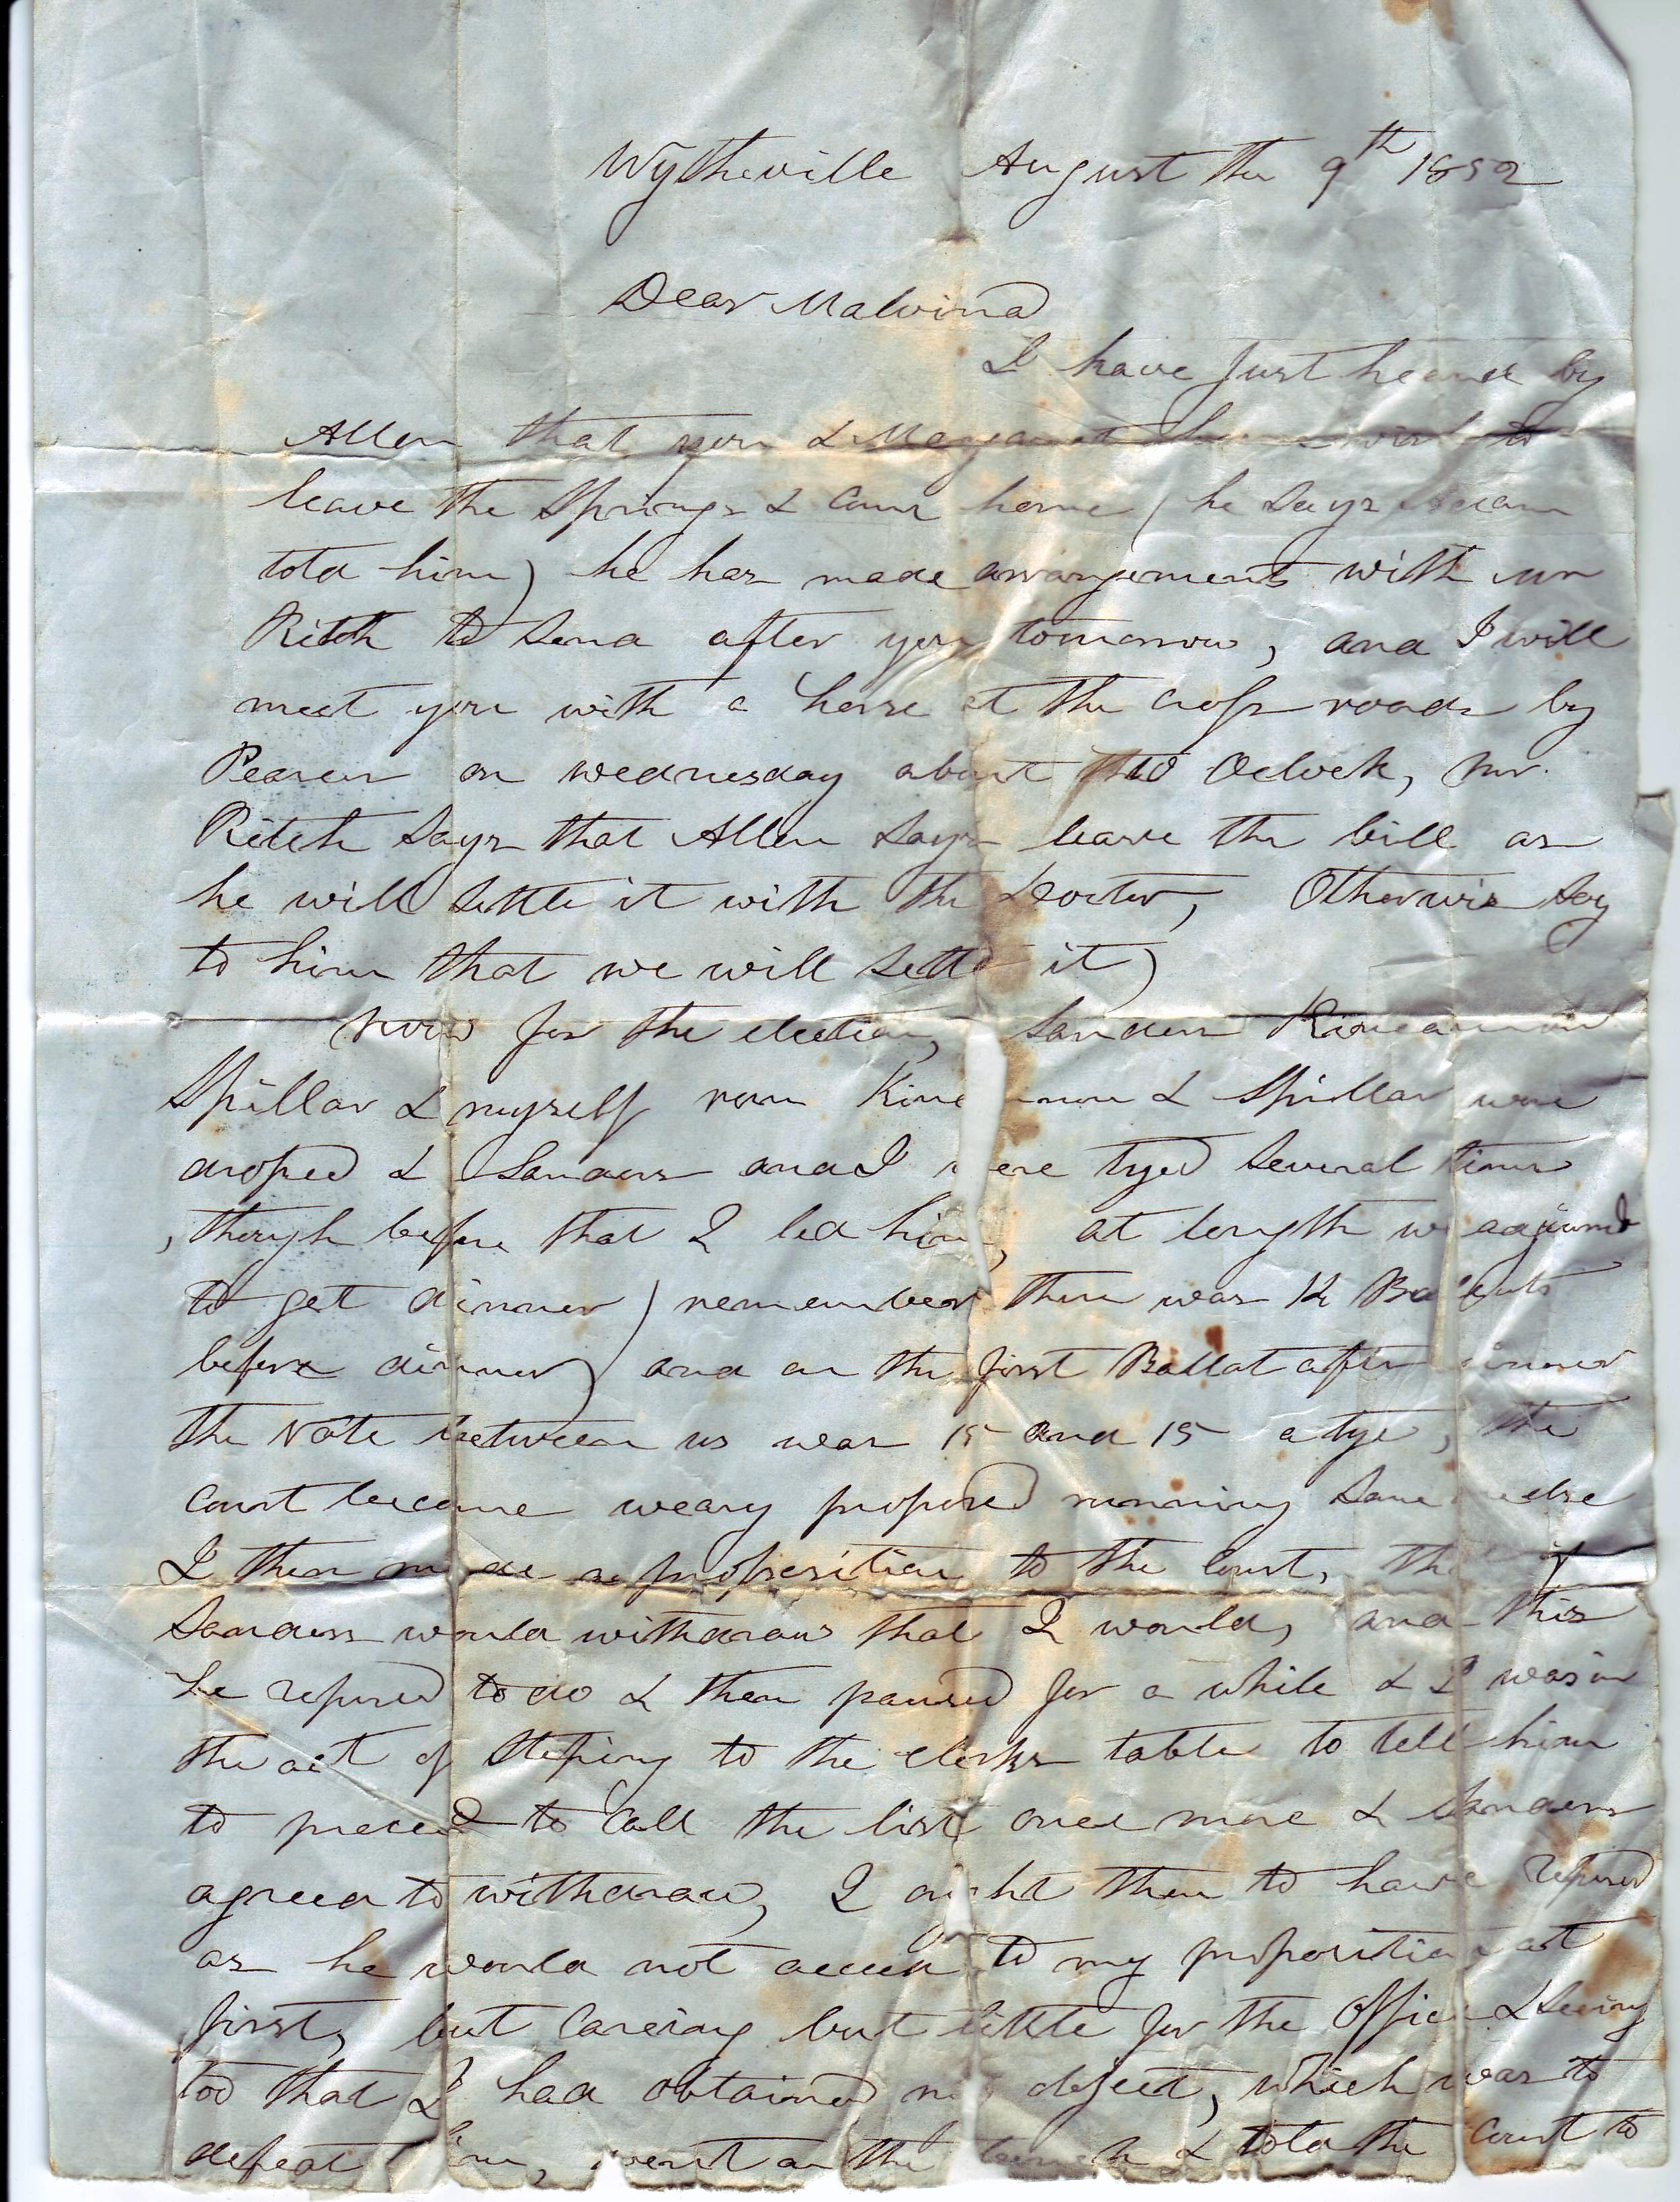 Wytheville August the 9th 1852
Dear Malvina
I have Just heard by
Allen that you & Margaret to
leave the Springs & Come home (he Says
told him) he has made arrangements with mr
Ritch to Send after you tomorrow, and I will
meet you with a horse at the cross roads by
on wednesday about 10 Oclock, mr.
Ritch Says that Allen Says leave the bill as
he will Settle it with the Doctor, Otherwise Say
to him that we will Settle it)
Now for the election, Sanders Kincannon
Spillar & myself ran Kincannon & Spillar were
droped & Sanders and I were tyed Several times
, though before that I led him, at length we adjourned
to get dinner (remember there was 12 Ballouts
before dinner) and on the first Ballot after dinner
the Vote between us was 15 and 15 a tye, the
Court became weary proposed running Some else
I then made a proposition to the Court, that if
Sanders would withdraw that I would, and this
he refused to do & then paused for a while & I was in
the act of Steping to the clerks table to tell him
to proceed to Call the list once more & Sanders
agreed to withdraw, I ought then to have refused
as he would not acceed to my proposition at
first, but Careing but little for the Office & Seeing
too that I had obtained my object, which was to
defeat him, went on the bench & told the Court to